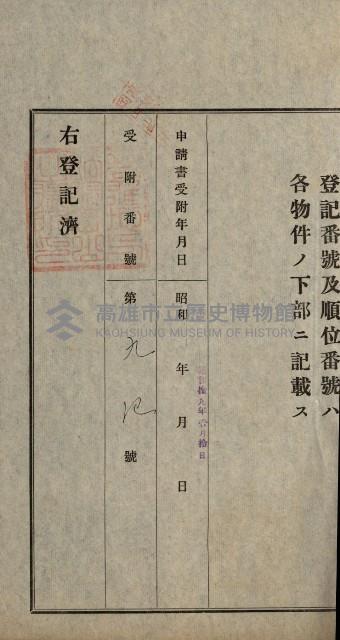 登記番號及順位番號ハ
各物件ノ下部ニ記載ス
申請書受附年月日 昭和 年 月 日
拾九年 月拾 日
受附番號 第 九 號
右登記濟
高雄市立歷史博物館
KAOHSIUNG MUSEUM OF HISTORY